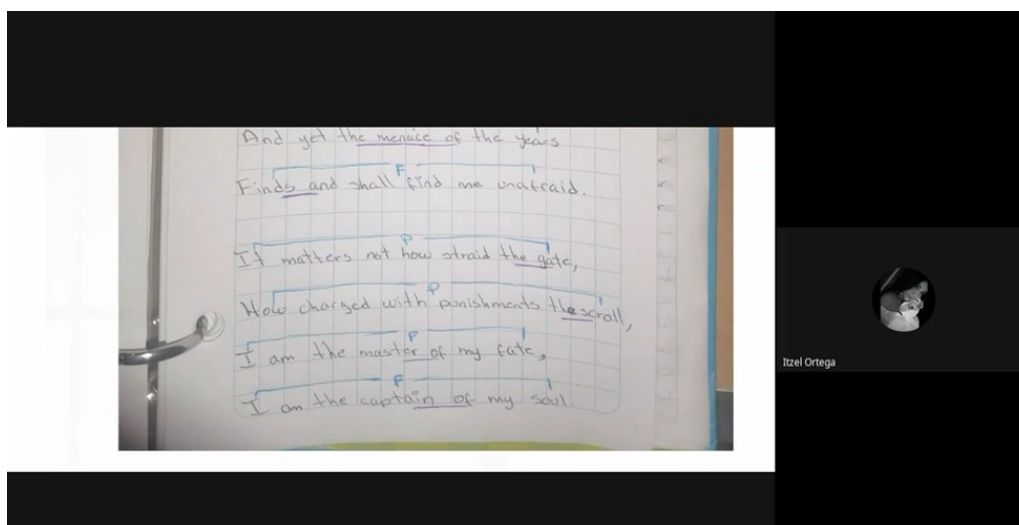 And yet the menace of the years
F
Finds and shall find me unafraid.
P
It matters not how straid the gate,
P
How charged with punishments the scroll,
F
I am the master of my fate,
F
I am the captain of my soul.
Itzel Ortega